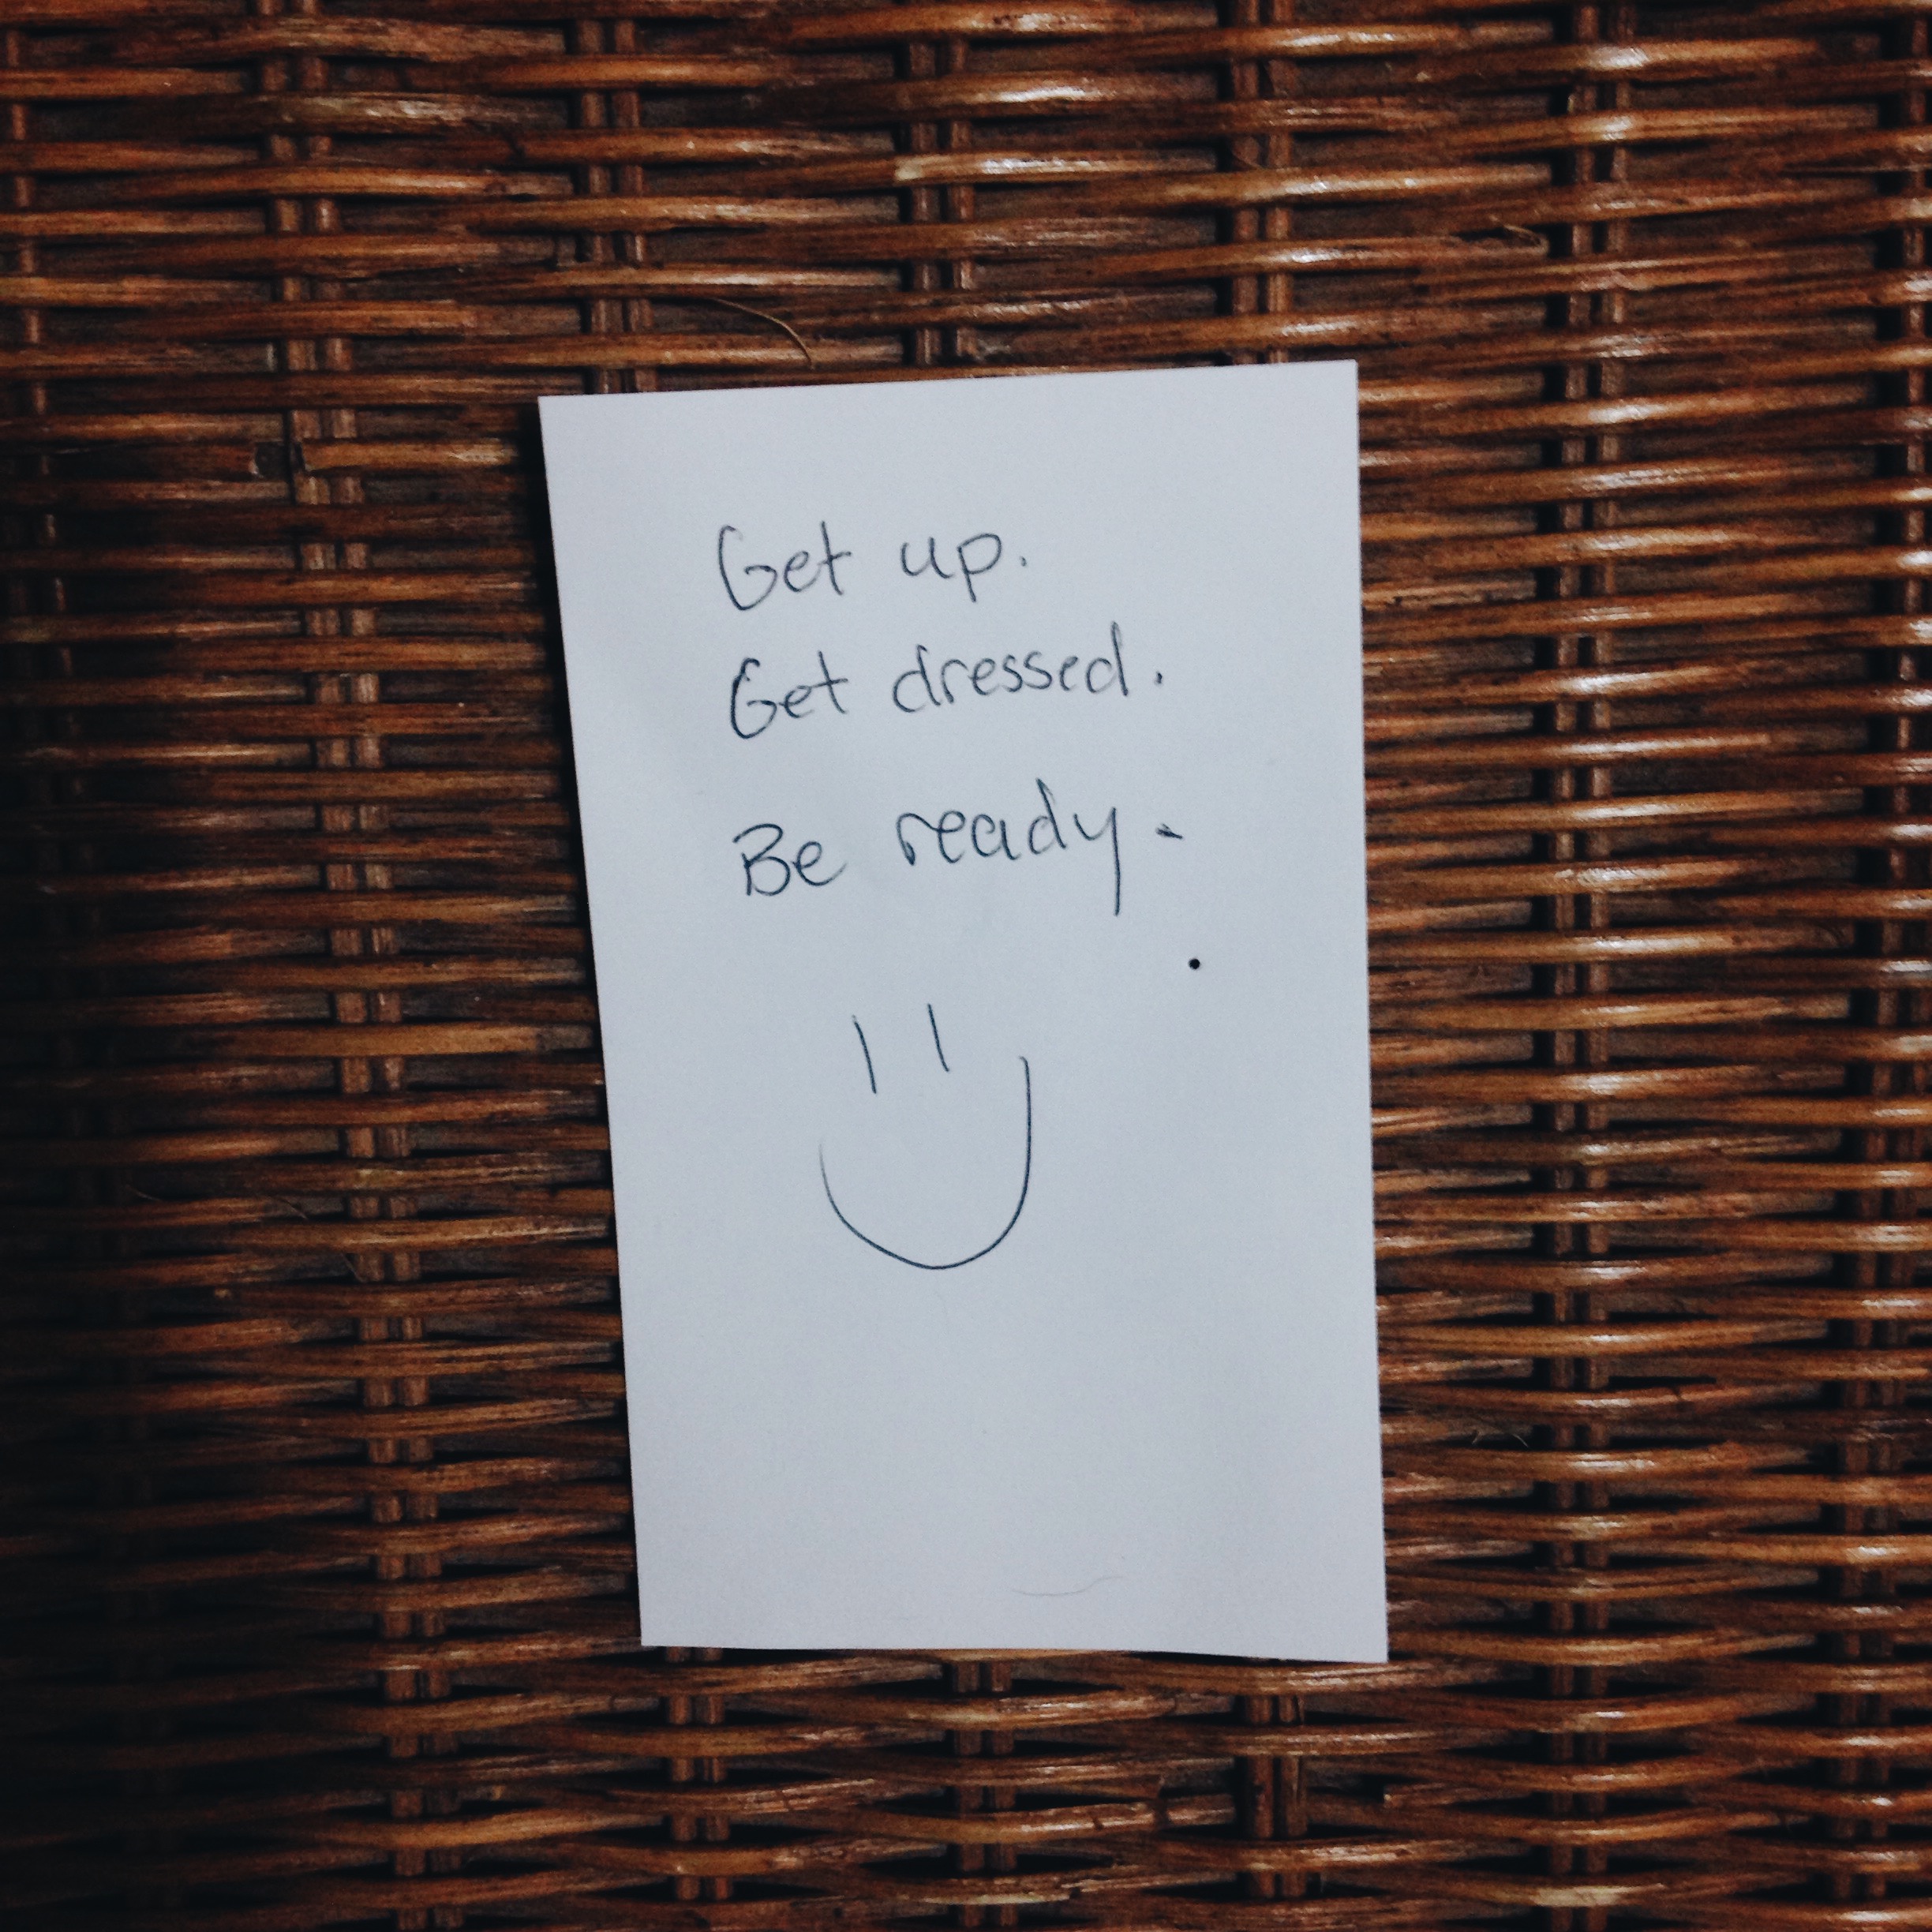 Get up.
Get dressed.
Be ready.